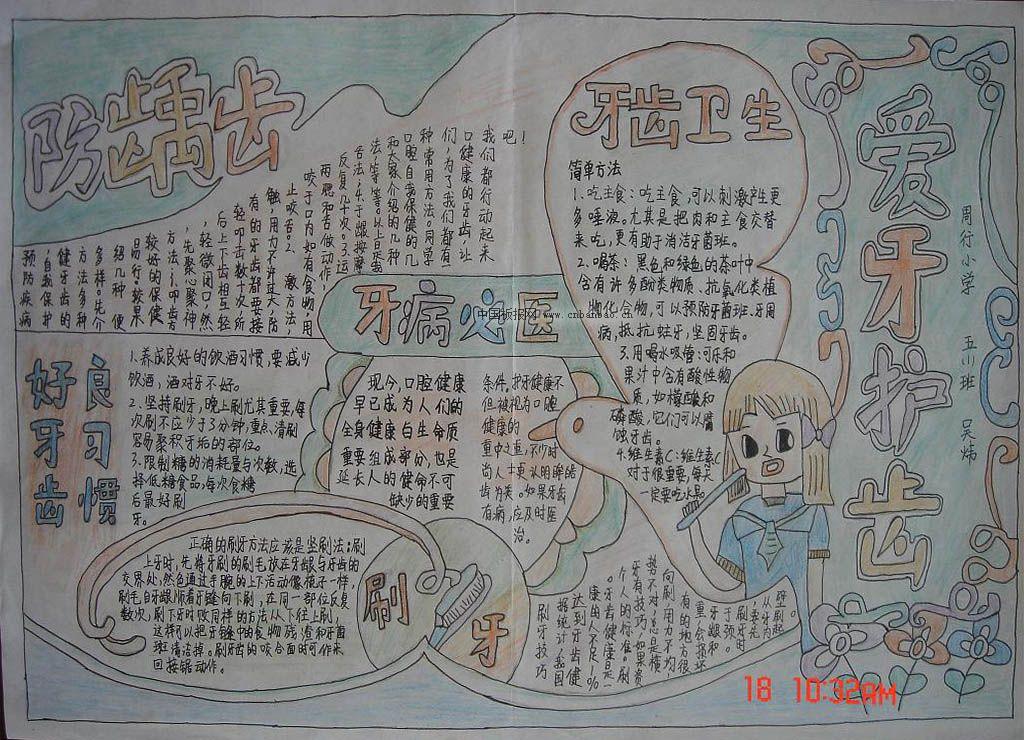 防龋齿
我们都行动起来吧!
口健康的牙齿,让
们,为了我们都有一
种常用方法。同学
口腔自我保健的几
和大家介绍的几种
法,等等。以上是我
舌法;
反复几十次。3.运
两腮和舌做动作,
咬于口内如有食物,用
止咬舌。2.
触,用力不许过大,防
有的牙齿都要接
轻叩击数十次,所
后上下齿相互轻
,轻微闭口,然
,先聚心聚神
方法:1.叩齿方
较好的保健
易行。较果
绍几种 便
多样。先介
方法多种
健牙齿的
,自我保护
预防疾病
牙齿卫生
简单方法
1.吃主食:吃主食,可以刺激产生更
多唾液。尤其是把肉和主食交替
来吃,更有助于消洁牙菌班。
2.喝茶:黑色和绿色的茶叶中
含有许多酚类物质、抗氧化类植
物化合物,可以预防牙菌班、牙周
病,抵抗蛀牙,坚固牙齿。
3.用喝水吸管:可乐和
果汁中含有酸性物
质,如柠檬酸和
磷酸,它们可以腐
蚀牙齿。
4.维生素C:维生素C
对于很重要,每天
一定要吃水果。
爱牙护齿
周行小学 五(1)班 吴炜
牙病必医
中国板报网 www.cnbanbao.cn
现今,口腔健康
早已成为人们的
全身健康白生命质
重要组成部分,也是
延长人的健命不可
缺少的重要
条件,护牙健康不
但被视为口腔
健康的
重中之重,不少时
尚人士更认明眸皓
齿为美。如果牙齿
有病,应及时医
治。
良好牙齿习惯
1.养成良好的饮酒习惯,要减少
饮酒,酒对牙不好。
2.坚持刷牙,晚上刷尤其重要,每
次刷不应少于3分钟,重点清刷
容易聚积牙垢的部位。
3.限制糖的消耗量与次数,选
择低糖食品,每次食糖
后最好刷
牙。
刷牙
正确的刷牙方法应该是竖刷法:刷
上牙时,先将牙刷的刷毛放在牙龈与牙齿的
交界处,然色通过手腕的上下活动像镜子一样,
刷毛自牙龈顺着牙缝向下刷,在同一部位反复
数次,刷下牙时仅同样的方法从下往上刷,
这样可以把牙缝中的食物残渣和牙菌
班清洁掉。刷牙齿的咬合面时可作来
回接锯动作。
刷牙技巧
据统计,我国
达到牙齿健
康的人不足1%
。牙齿健康是一
个人的标准。刷
牙有技巧,如果姿
势不对,总是横
向刷,用力不均,
有的地方很
重,会损坏
牙龈和
18 10:32AM